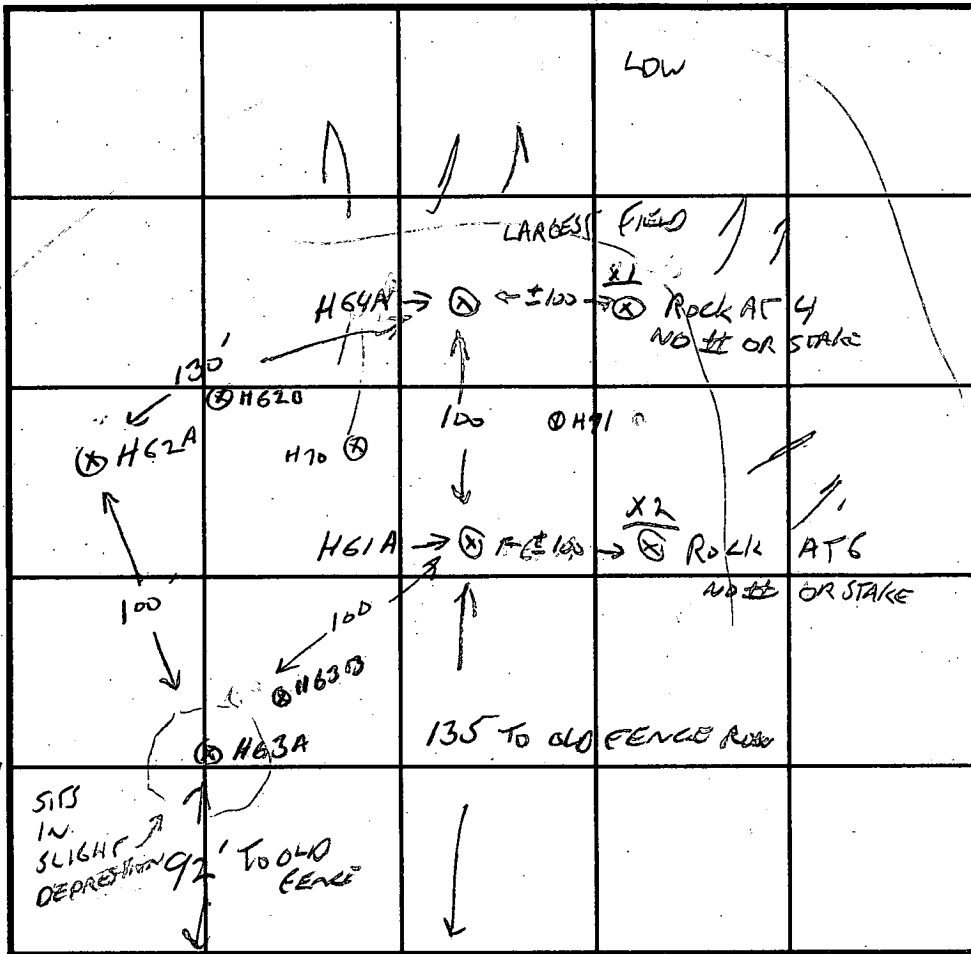 LOW
LARGEST FIELD
X1
H64A
±100
ROCK AT 4
NO # OR STAKE
130'
H62B
H62A
H70
100
H71
X2
H61A
±100
ROCK AT 6
NO # OR STAKE
100'
100
H63B
H63A
135 TO OLD FENCE ROW
SITS
IN
SLIGHT
DEPRESSION
92' TO OLD
FENCE